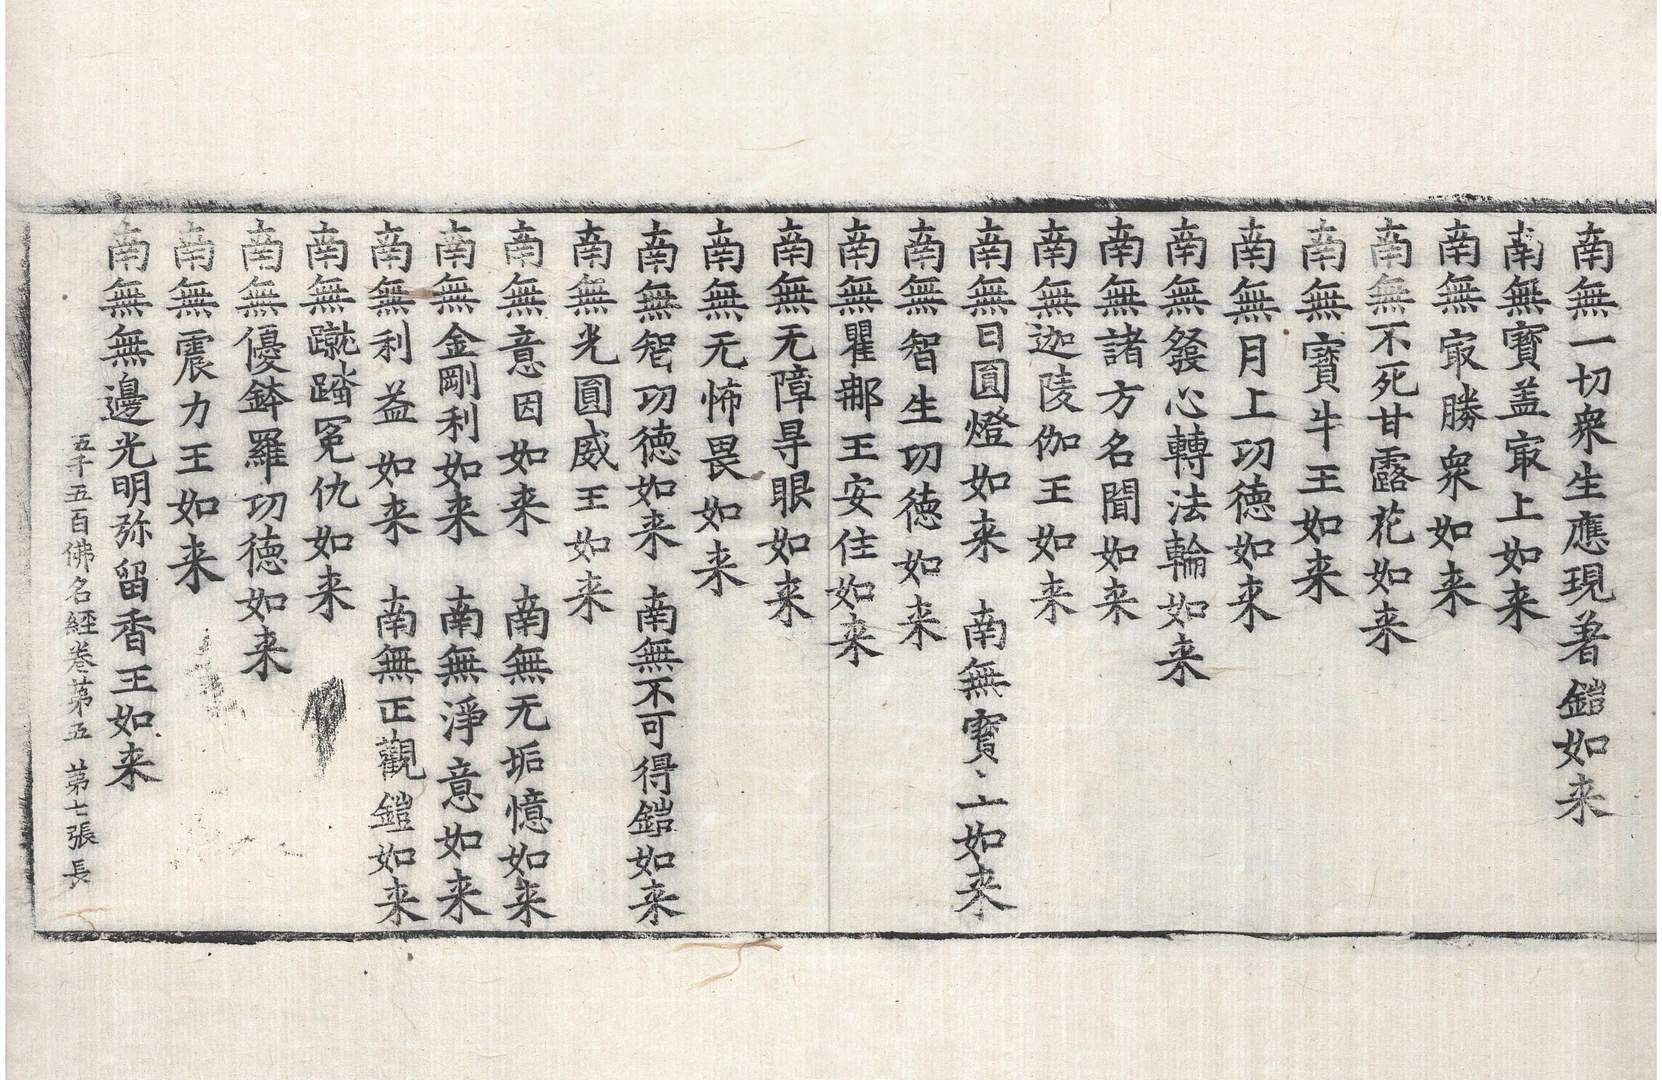 南無一切衆生應現著鎧如来
南無寶盖㝡上如来
南無㝡勝衆如来
南無不死甘露花如来
南無寶牛王如来
南無月上功徳如来
南無發心轉法輪如来
南無諸方名聞如来
南無迦陵伽王如来
南無日圓燈如来　南無寶〻上如来
南無智生功徳如来
南無瞿𨚗王安住如来
南無无障㝵眼如来
南無无怖畏如来
南無智功徳如来　南無不可得鎧如来
南無光圓威王如来
南無意因如来　南無无垢憶如来
南無金剛利如来　南無淨意如来
南無利益如来　南無正觀鎧如来
南無蹴踏冤仇如来
南無優鉢羅功徳如来
南無震力王如来
南無無邊光明弥留香王如来
五千五百佛名經卷苐五　苐七張　長